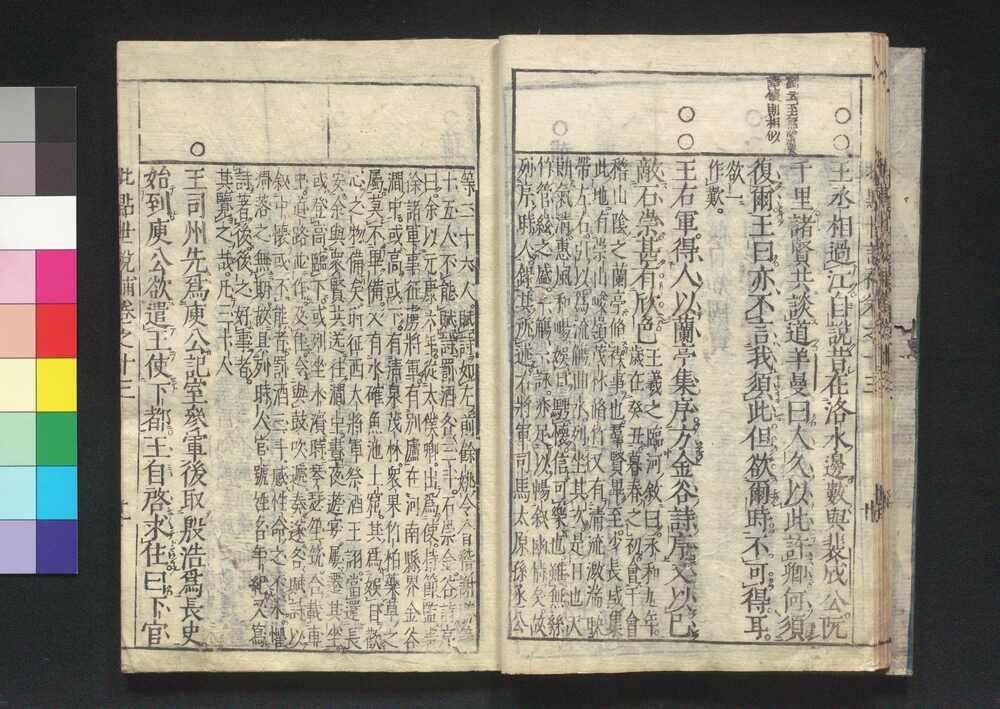 王丞相過江自說昔在洛水邊數與裴成公阮
千里諸賢共談道羊曼曰人久以此許卿何須
復爾王曰亦不言我須此但欲爾時不可得耳
欲一
作歎
王右軍得人以蘭亭集序方金谷詩序又以己
敵石崇甚有欣色
王羲之臨河敘曰永和九年
歲在癸丑暮春之初會于會
稽山陰之蘭亭脩禊事也羣賢畢至少長咸集
此地有崇山峻嶺茂林脩竹又有清流激湍映
帶左右引以為流觴曲水列坐其次是日也天
朗氣清惠風和暢娛目騁懷信可樂也雖無絲
竹管絃之盛一觴一詠亦足以暢敘幽情矣故
列序時人錄其所述右將軍司馬太原孫丞公
等二十六人賦詩如左前餘姚令會稽謝勝等
十五人不能賦詩罰酒各三斗石崇金谷詩序
曰余以元康六年從太僕卿出為使持節監青
徐諸軍事征虜將軍有別廬在河南縣界金谷
澗中或高或下有清泉茂林眾果竹柏藥草之
屬莫不畢備又有水碓魚池土窟其為娛目歡
心之物備矣時征西大將軍祭酒王詡當還長
安余與眾賢共送往澗中晝夜遊宴屢遷其坐
或登高臨下或列坐水濱時琴瑟笙筑合載車
中道路並作及住令與鼓吹遞奏遂各賦詩以
敘中懷或不能者罰酒三斗感性命之不永懼
凋落之無期故具列時人官號姓名年紀又寫
詩著後後之好事者
其覽之哉凡三十人
王司州先為庾公記室參軍後取殷浩為長史
始到庾公欲遣王使下都王自啓求住曰下官
世說補卷之十三